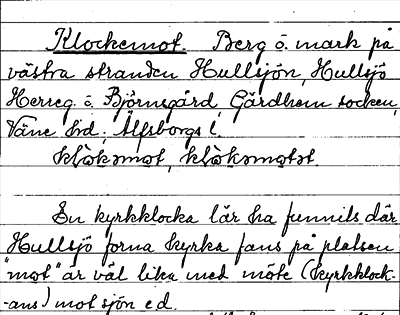 Klockemot. Berg o. mark på
västra stranden Hullsjön, Hullsjö
Herreg. o. Björnsgård, Gärdhem socken,
Väne hd. Älfsborgs l.
klåkəmot, klåkəmotət.
En kyrkklocka lär ha funnits där
Hullsjö forna kyrka fans på platsen
"mot" är väl lika med möte (kyrkklock-
-ans) mot sjön e d.